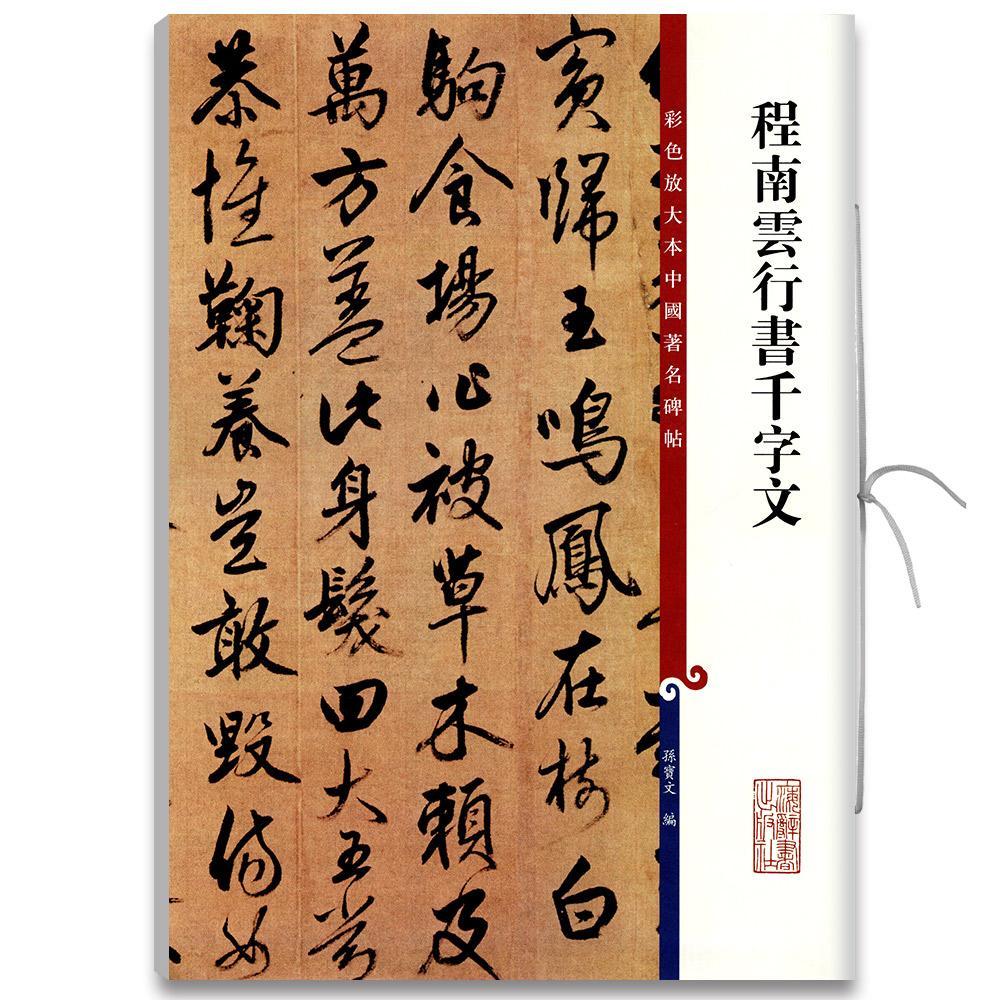 程南雲行書千字文
彩色放大本中國著名碑帖
孫寶文 編
上海辭書出版社
賓歸王鳴鳳在樹白
駒食場化被草木賴及
萬方蓋此身髮四大五常
恭惟鞠養豈敢毀傷女